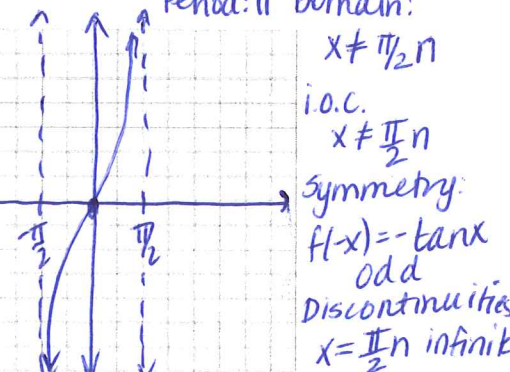 Period: π Domain:
x ≠ π/2 n
i.o.c.
x ≠ π/2 n
Symmetry:
f(-x) = -tanx
odd
Discontinuities
x = π/2 n infinit
-π/2 π/2